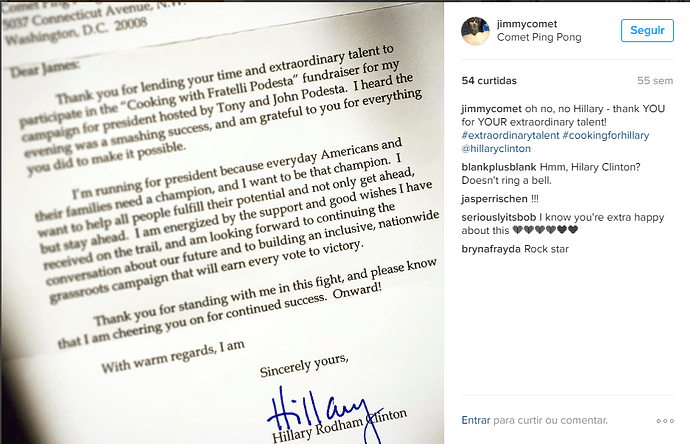 Comet Ping
5037 Connecticut Avenue, N.W.
Washington, D.C. 20008
Dear James:
Thank you for lending your time and extraordinary talent to
participate in the "Cooking with Fratelli Podesta" fundraiser for my
campaign for president hosted by Tony and John Podesta. I heard the
evening was a smashing success, and am grateful to you for everything
you did to make it possible.
I'm running for president because everyday Americans and
their families need a champion, and I want to be that champion. I
want to help all people fulfill their potential and not only get ahead,
but stay ahead. I am energized by the support and good wishes I have
received on the trail, and am looking forward to continuing the
conversation about our future and to building an inclusive, nationwide
grassroots campaign that will earn every vote to victory.
Thank you for standing with me in this fight, and please know
that I am cheering you on for continued success. Onward!
With warm regards, I am
Sincerely yours,
Hillary
Hillary Rodham Clinton
jimmycomet
Comet Ping Pong
Seguir
54 curtidas
55 sem
jimmycomet oh no, no Hillary - thank YOU
for YOUR extraordinary talent!
#extraordinarytalent #cookingforhillary
@hillaryclinton
blankplusblank Hmm, Hilary Clinton?
Doesn't ring a bell.
jasperrischen !!!
seriouslyitsbob I know you're extra happy
about this 🖤🖤🖤🖤🖤🖤
brynafrayda Rock star
Entrar para curtir ou comentar.